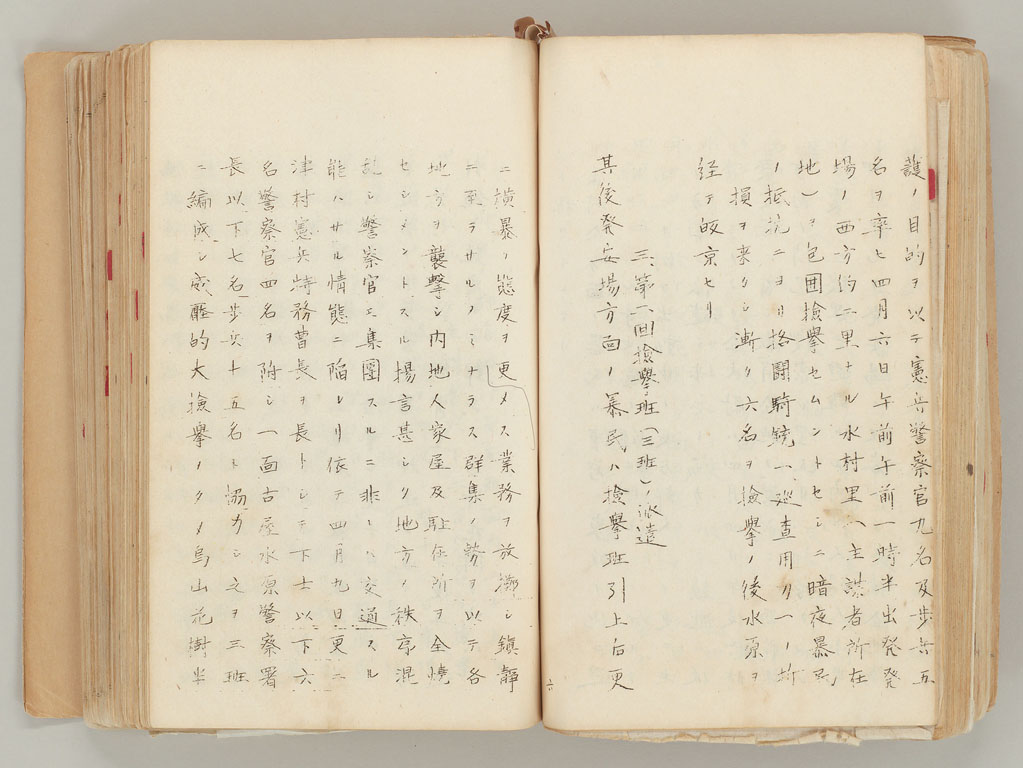 護ノ目的ヲ以テ憲兵警察官九名及歩兵五
名ヲ率ヒ四月六日午前午前一時半出発発
場ノ西方約二里ナル水村里(主謀者所在
地)ヲ包囲検挙セムントセシニ暗夜暴民
ノ抵抗ニヨリ格闘騎銃一、巡査用刀一ノ折
損ヲ来タシ漸ク六名ヲ検挙ノ後水原ヲ
経テ皈京セリ
三、第二回検挙班(三班)ノ派遣
其後発安場方面ノ暴民ハ検挙班引上后更
ニ横暴ノ態度ヲ更メス業務ヲ放擲シ鎮静
ニ至ラサルノミナラス群集ノ勢ヲ以テ各
地方ヲ襲撃シ内地人家屋及駐在所ヲ全焼
セシメントスル揚言甚シク地方ノ秩序混
乱シ警察官モ集團スルニ非レハ交通スル
能ハサル情態ニ陥レリ依テ四月九日更ニ
津村憲兵特務曹長ヲ長トシテ下士以下六
名警察官四名ヲ附シ一面古屋水原警察署
長以下七名歩兵十五名ト協力シ之ヲ三班
ニ編成シ威圧的大検挙ノタメ烏山花樹半
六